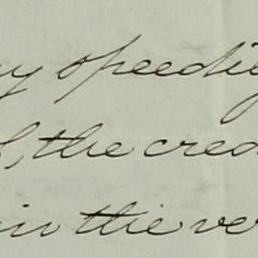 ay speedie
, the cred
in the ve